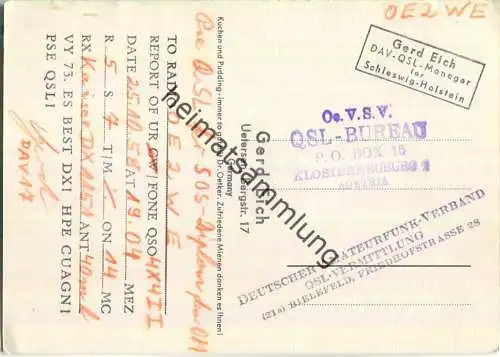 OE2WE
Gerd Eich
DAV-QSL-Manager
for
Schleswig-Holstein
Oe.V.S.V.
QSL-BUREAU
P.O. BOX 15
KLOSTERNEUBURG 2
AUSTRIA
DEUTSCHER AMATEURFUNK-VERBAND
QSL-VERMITTLUNG
(21a) BIELEFELD, FRIEDHOFSTRASSE 28
Gerd Eich
Uetersen, bergstr. 17
Germany
Kuchen und Pudding - immer so gut Dr. Oetker. Zufriedene Mienen danken es Ihnen!
Pse QSL SOS-Diplom for OM
TO RADIO OE2WE
REPORT OF UR CW/FONE QSO 4X4II
DATE 25.10.58 AT 19.04 MEZ
R 5 S 7 T/M / ON 14 MC
RX Kaiser DX 1151 ANT 40 m l
VY 73. ES BEST DX! HPE CUAGN!
PSE QSL!
Gerd
DAV17
heimatsammlung